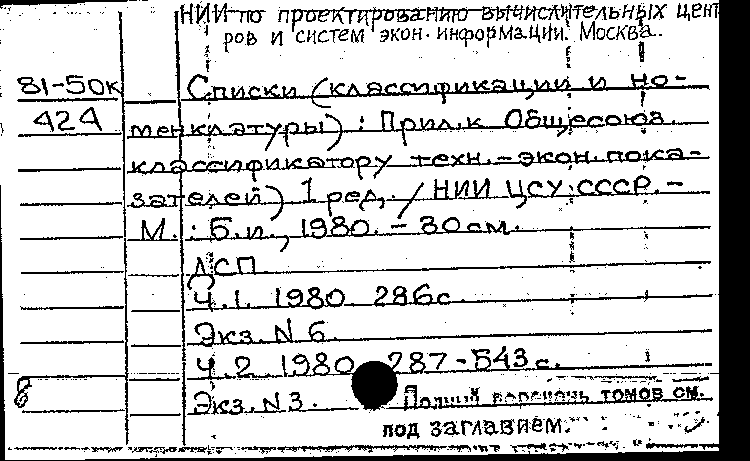 НИИ по проектированию вычислительных цент
ров и систем экон. информации. Москва.
81-50к Списки (классификации и но-
424 менклатуры) : Прил. к Общесоюз.
классификатору техн.-экон. пока-
зателей) 1 ред, . / НИИ ЦСУ СССР. -
М. : Б. и., 1980. - 30 см.
ДСП
Ч. 1. 1980. 286с
Экз. N 6.
Ч. 2. 1980. 287-543с.
8 Экз. N 3. Полный перечень томов см.
под заглавием.